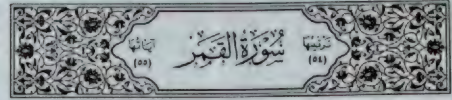 ترتيبها
(٥٤)
سُورَةُ القَمَرِ
آياتها
(٥٥)